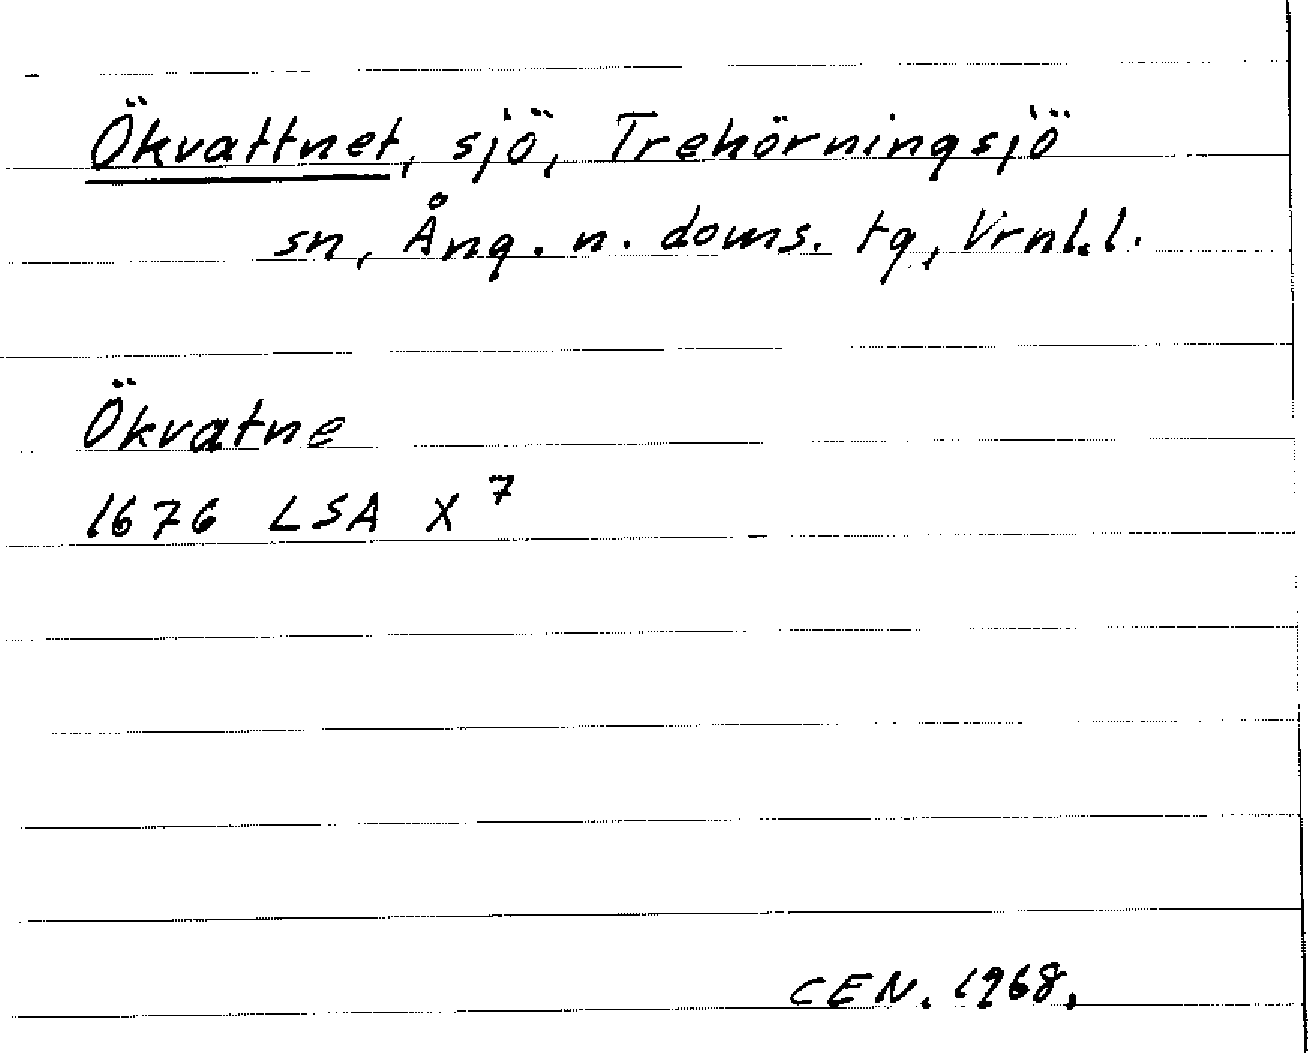 Ökvattnet, sjö, Trehörningsjö
sn, Ång. n. doms. tg, Vrnl.l.
Ökvatne
1676 LSA X 7
CEN. 1968.